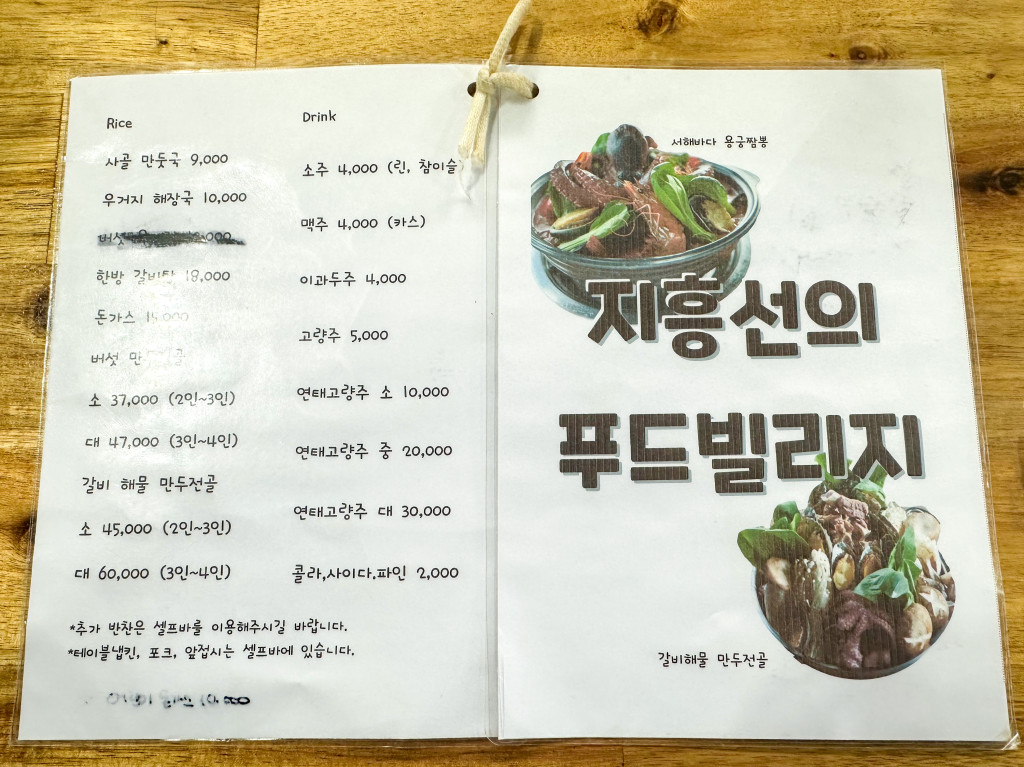 Rice
사골 만둣국 9,000
우거지 해장국 10,000
버섯
한방 갈비탕 18,000
돈가스
버섯 만두전골
소 37,000 (2인~3인)
대 47,000 (3인~4인)
갈비 해물 만두전골
소 45,000 (2인~3인)
대 60,000 (3인~4인)
*추가 반찬은 셀프바를 이용해주시길 바랍니다.
*테이블냅킨, 포크, 앞접시는 셀프바에 있습니다.
Drink
소주 4,000 (린, 참이슬)
맥주 4,000 (카스)
이과두주 4,000
고량주 5,000
연태고량주 소 10,000
연태고량주 중 20,000
연태고량주 대 30,000
콜라,사이다.파인 2,000
서해바다 용궁짬뽕
지흥선의
푸드빌리지
갈비해물 만두전골